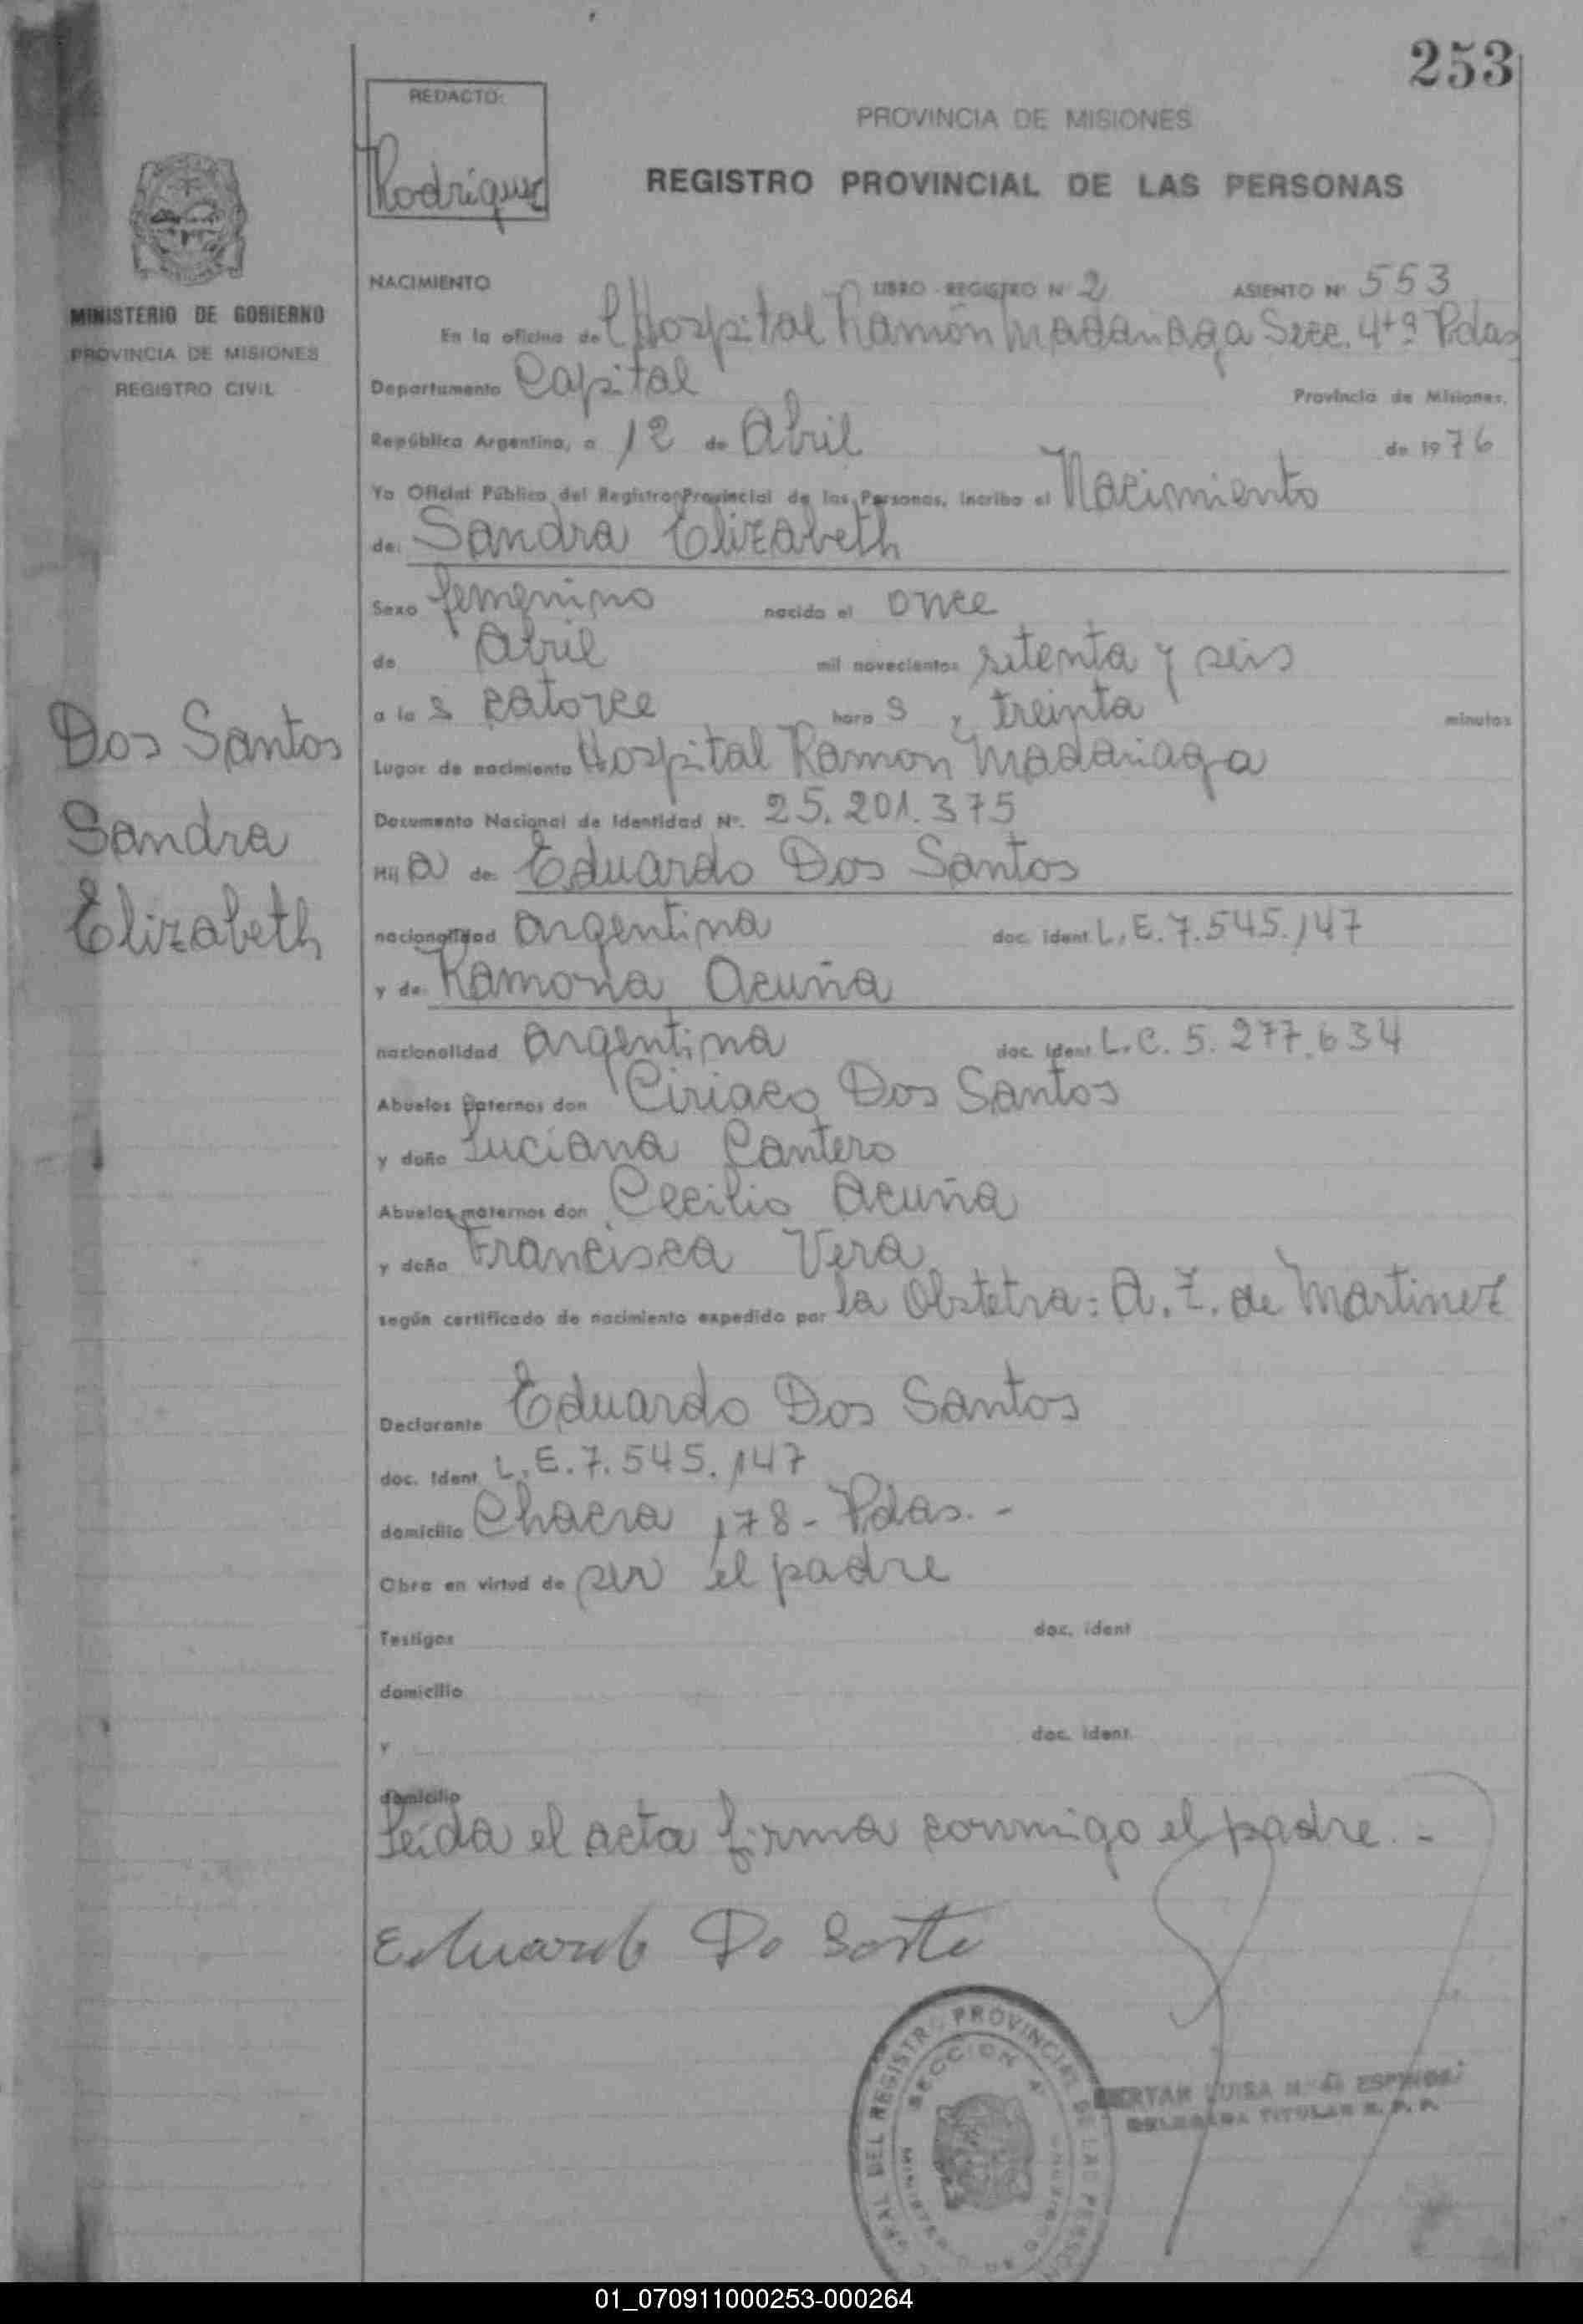 253
REDACTO:
Rodriguez
PROVINCIA DE MISIONES
REGISTRO PROVINCIAL DE LAS PERSONAS
MINISTERIO DE GOBIERNO
PROVINCIA DE MISIONES
REGISTRO CIVIL
NACIMIENTO LIBRO REGISTRO Nº 2 ASIENTO Nº 553
En la oficina del Hospital Ramón Madariaga Secc. 4ta Pdas
Departamento Capital Provincia de Misiones.
República Argentina, a 12 de Abril de 1976
Yo Oficial Público del Registro Provincial de las Personas, incribo el Nacimiento
de: Sandra Elizabeth
Sexo femenino nacido el once
de Abril mil novecientos setenta y seis
a las catorce horas y treinta minutos
Lugar de nacimiento Hospital Ramon Madariaga
Documento Nacional de Identidad Nº. 25.201.375
Hija de: Eduardo Dos Santos
nacionalidad argentina doc. ident L.E. 7.545.147
y de: Ramona Acuña
nacionalidad argentina doc. ident L.C. 5.277.634
Abuelos paternos don Ciriaco Dos Santos
y doña Luciana Cantero
Abuelos maternos don Cecilio Acuña
y doña Francisca Vera
según certificado de nacimiento expedido por la Obstetra: A. Z. de Martinez
Dos Santos
Sandra
Elizabeth
Declarante Eduardo Dos Santos
doc. ident. L.E. 7.545.147
domicilio Chacra 178 - Pdas. -
Obra en virtud de ser el padre
Testigos doc. ident
domicilio
y doc. ident.
domicilio
Leída el acta firma conmigo el padre. -
Eduardo Do Santo
REGISTRO PROVINCIAL DE LAS
SECCION 4
LUISA ESPINOSA
DELEGADA TITULAR R. P. P.
01_070911000253-000264